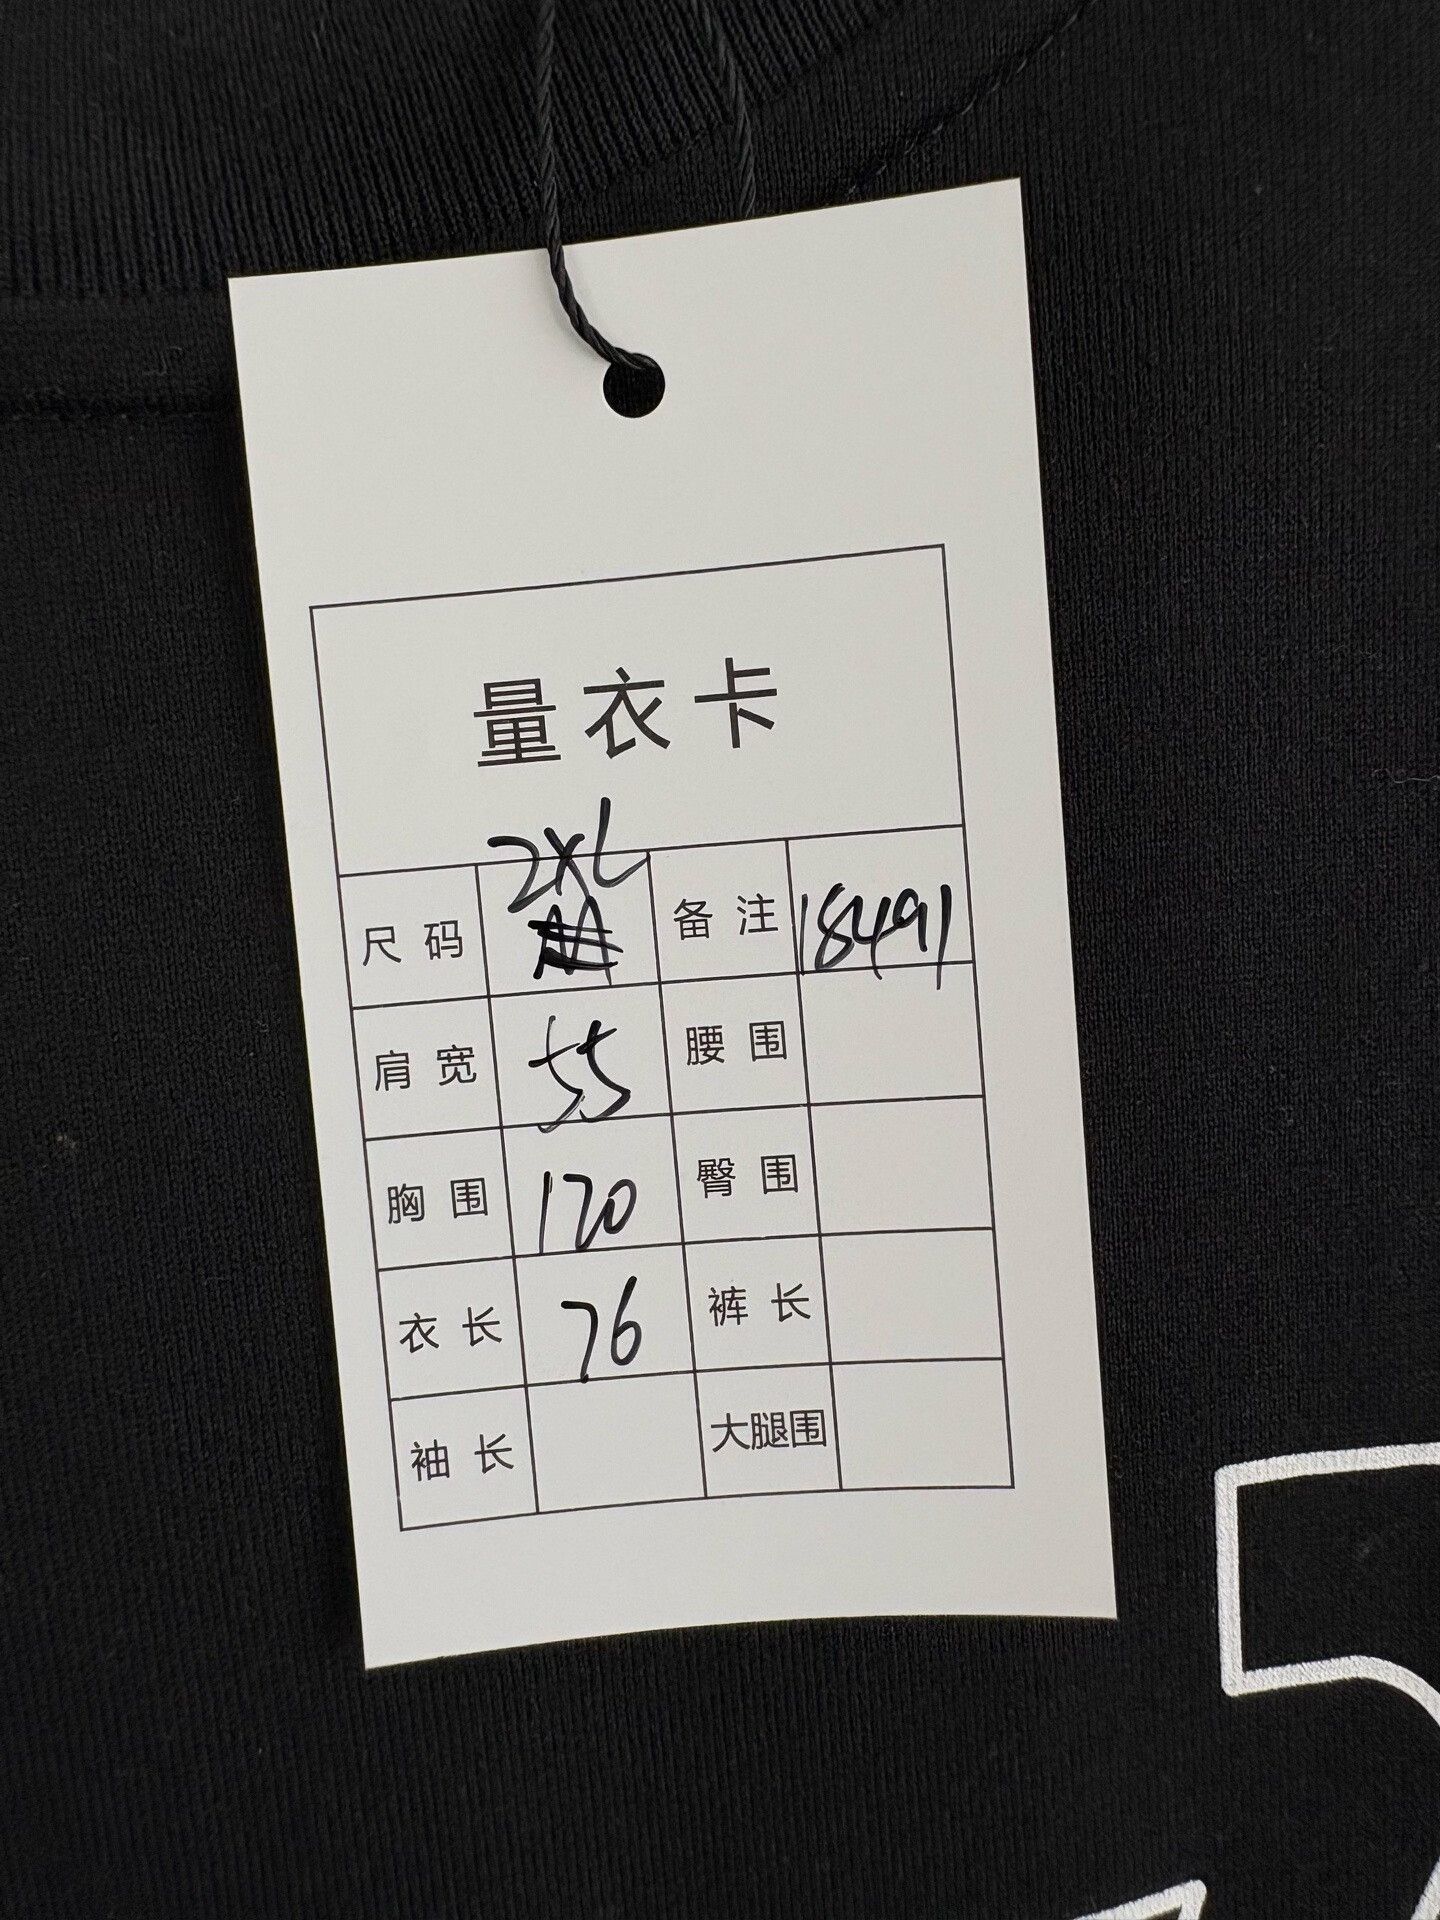 量衣卡
2XL
尺码 M 备注 18491
肩宽 55 腰围
胸围 120 臀围
衣长 76 裤长
袖长 大腿围